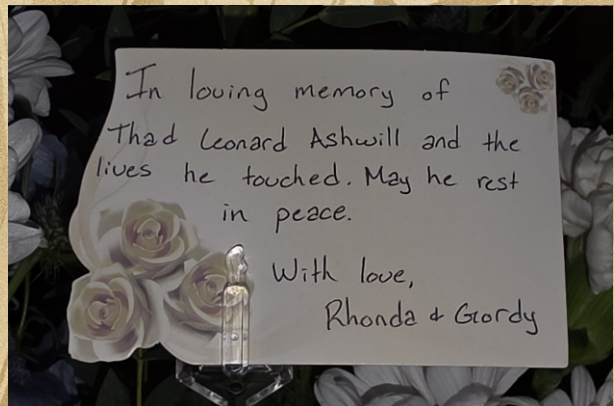 In loving memory of
Thad Leonard Ashwill and the
lives he touched. May he rest
in peace.
With love,
Rhonda & Gordy